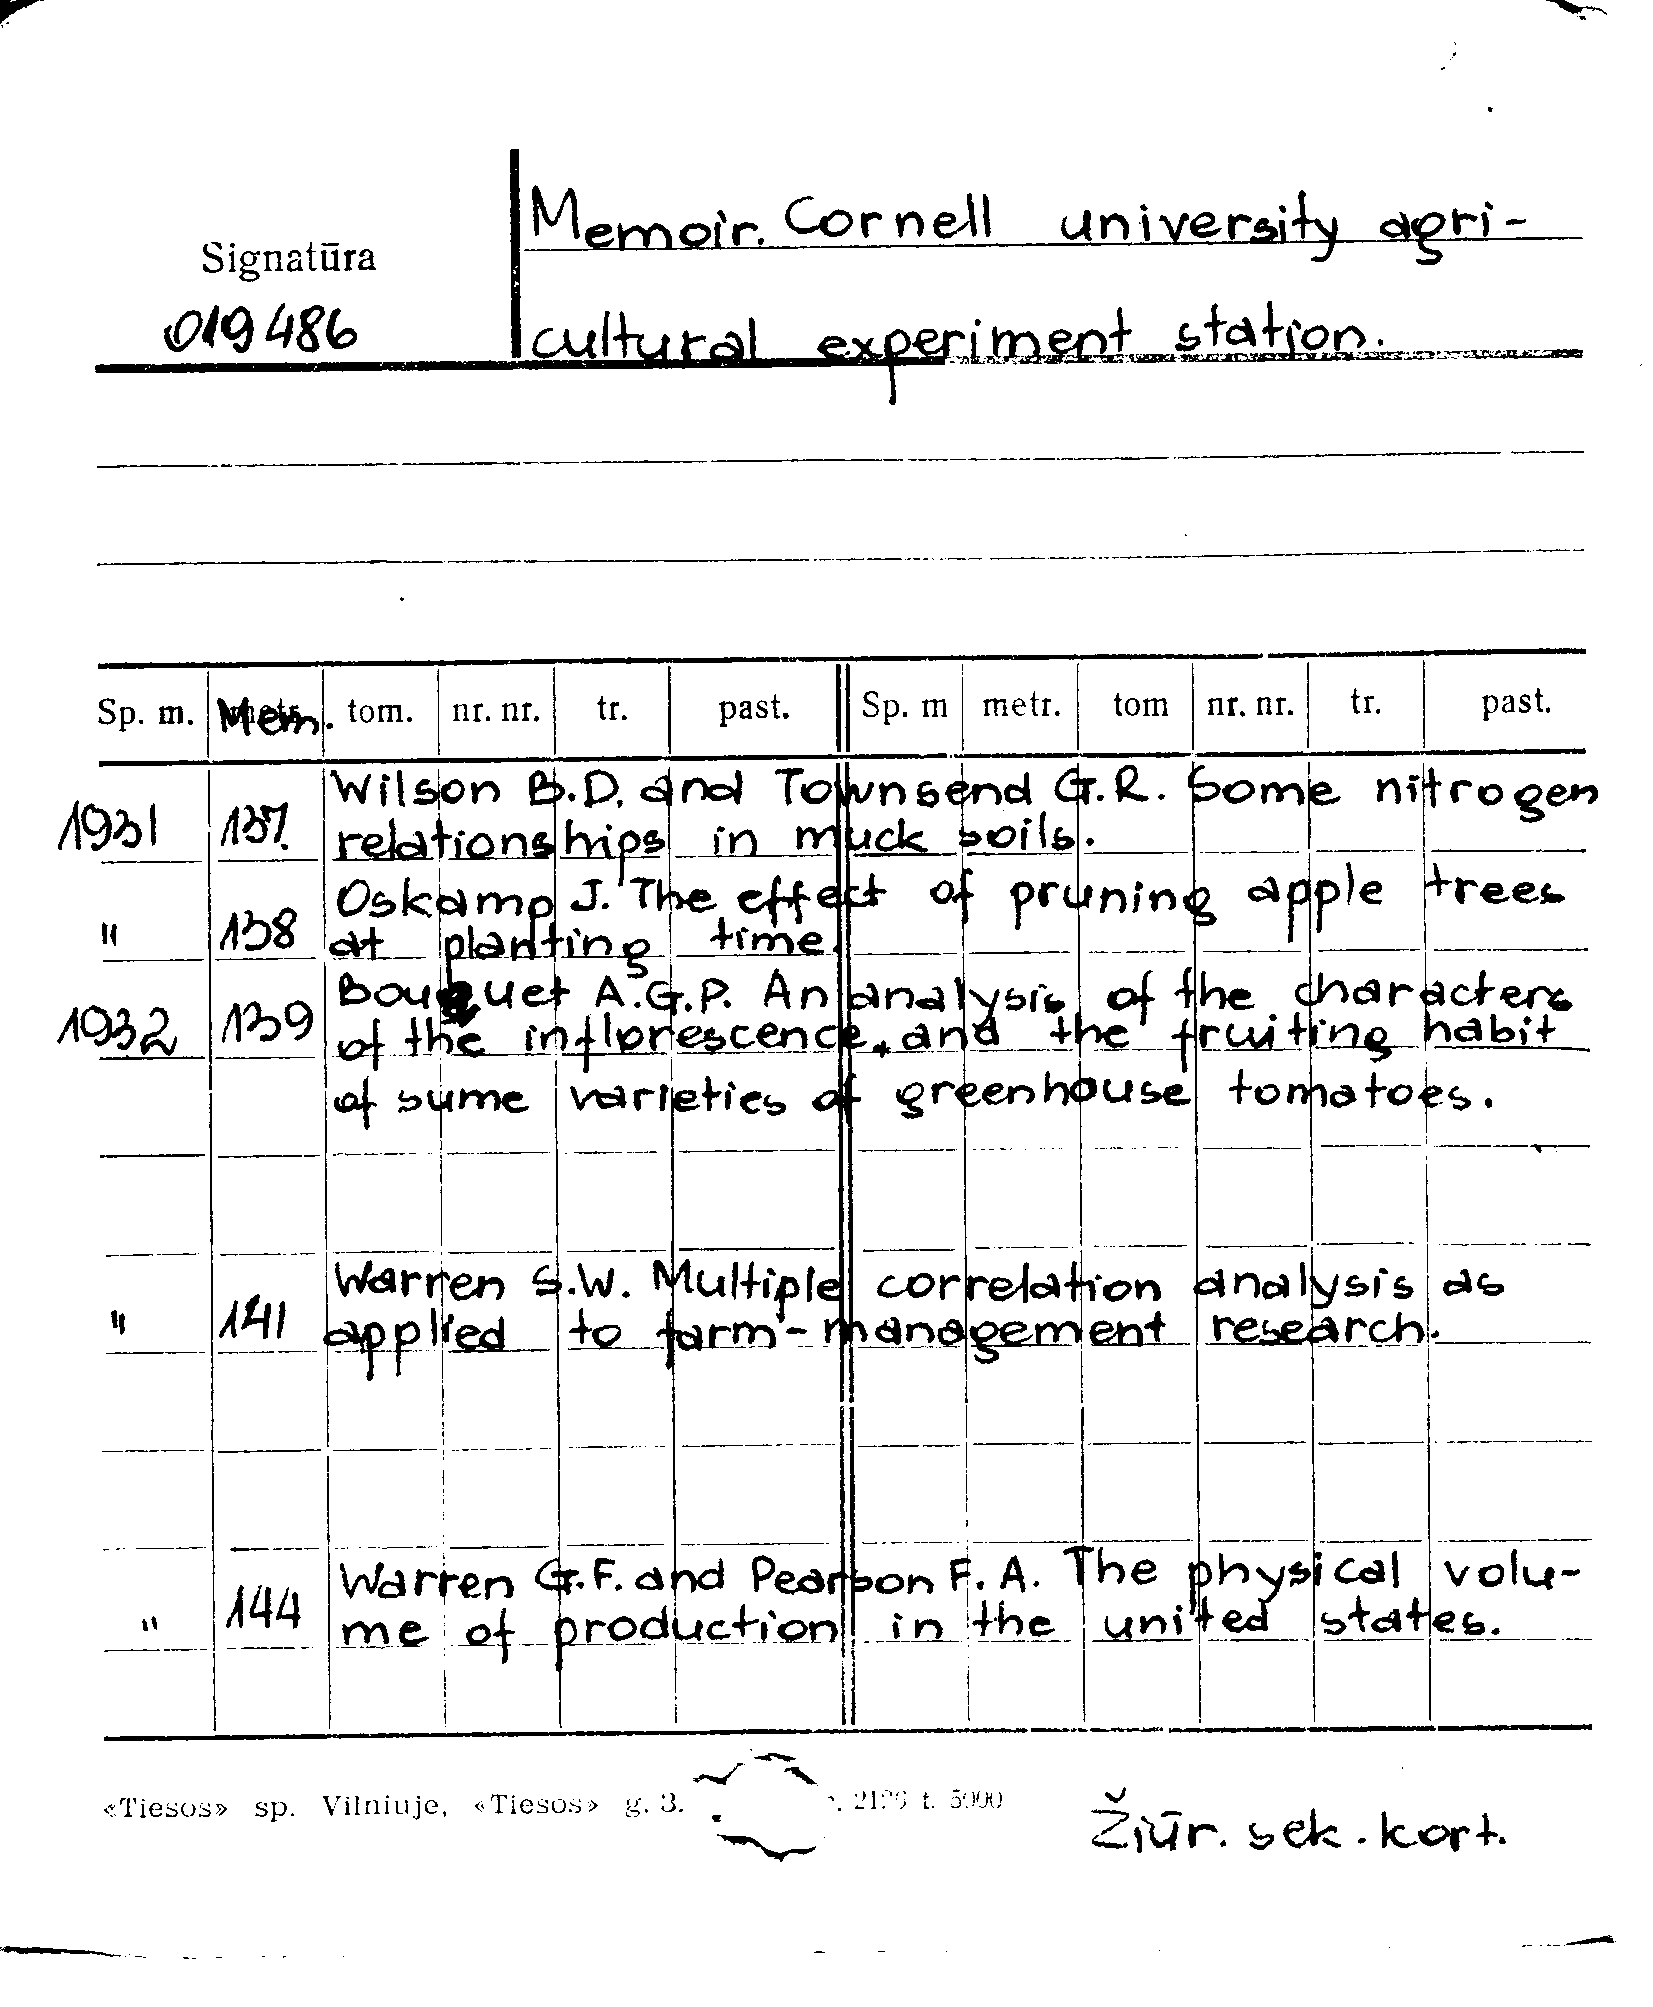 Memoir. Cornell university agri-
Signatūra
019486
cultural experiment station.
Sp. m. Mem. tom. nr. nr. tr. past. Sp. m metr. tom nr. nr. tr. past.
Wilson B.D. and Townsend G.R. Some nitrogen
1931 137. relationships in muck soils.
Oskamp J. The effect of pruning apple trees
" 138 at planting time.
Bouquet A.G.P. An analysis of the characters
1932 139 of the inflorescence and the fruiting habit
of sume varieties of greenhouse tomatoes.
Warren S.W. Multiple correlation analysis as
" 141 applied to farm-management research.
Warren G.F. and Pearson F.A. The physical volu-
" 144 me of production in the united states.
«Tiesos» sp. Vilniuje, «Tiesos» g. 3. t. 5000
Žiūr. sek. kort.